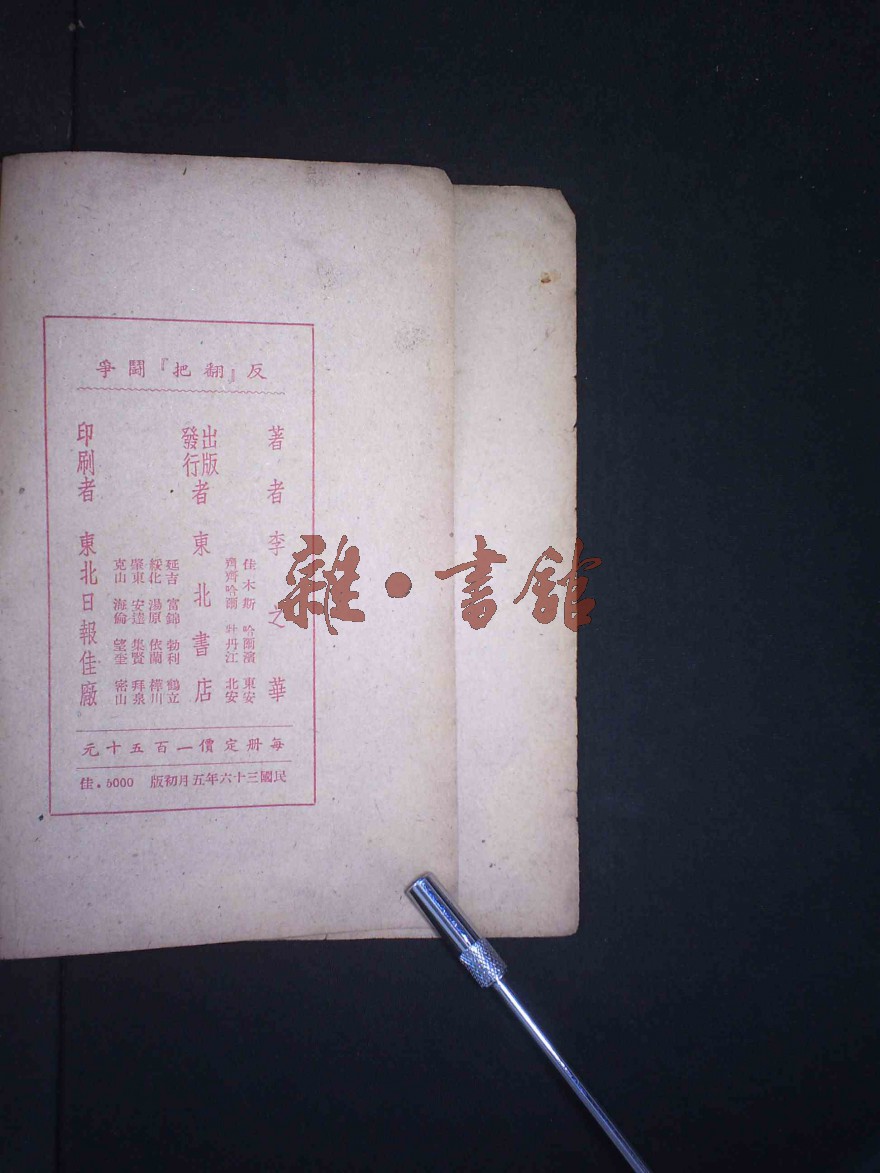 反『翻把』鬪爭
著者 李之華
出版
發行
者 東北書店
佳木斯 哈爾濱 東安
齊齊哈爾 牡丹江 北安
延吉 富錦 勃利 鶴立
綏化 湯原 依蘭 樺川
肇東 安達 集賢 拜泉
克山 海倫 望奎 密山
印刷者 東北日報佳廠
每册定價一百五十元
民國三十六年五月初版 5000.佳
雜·書館